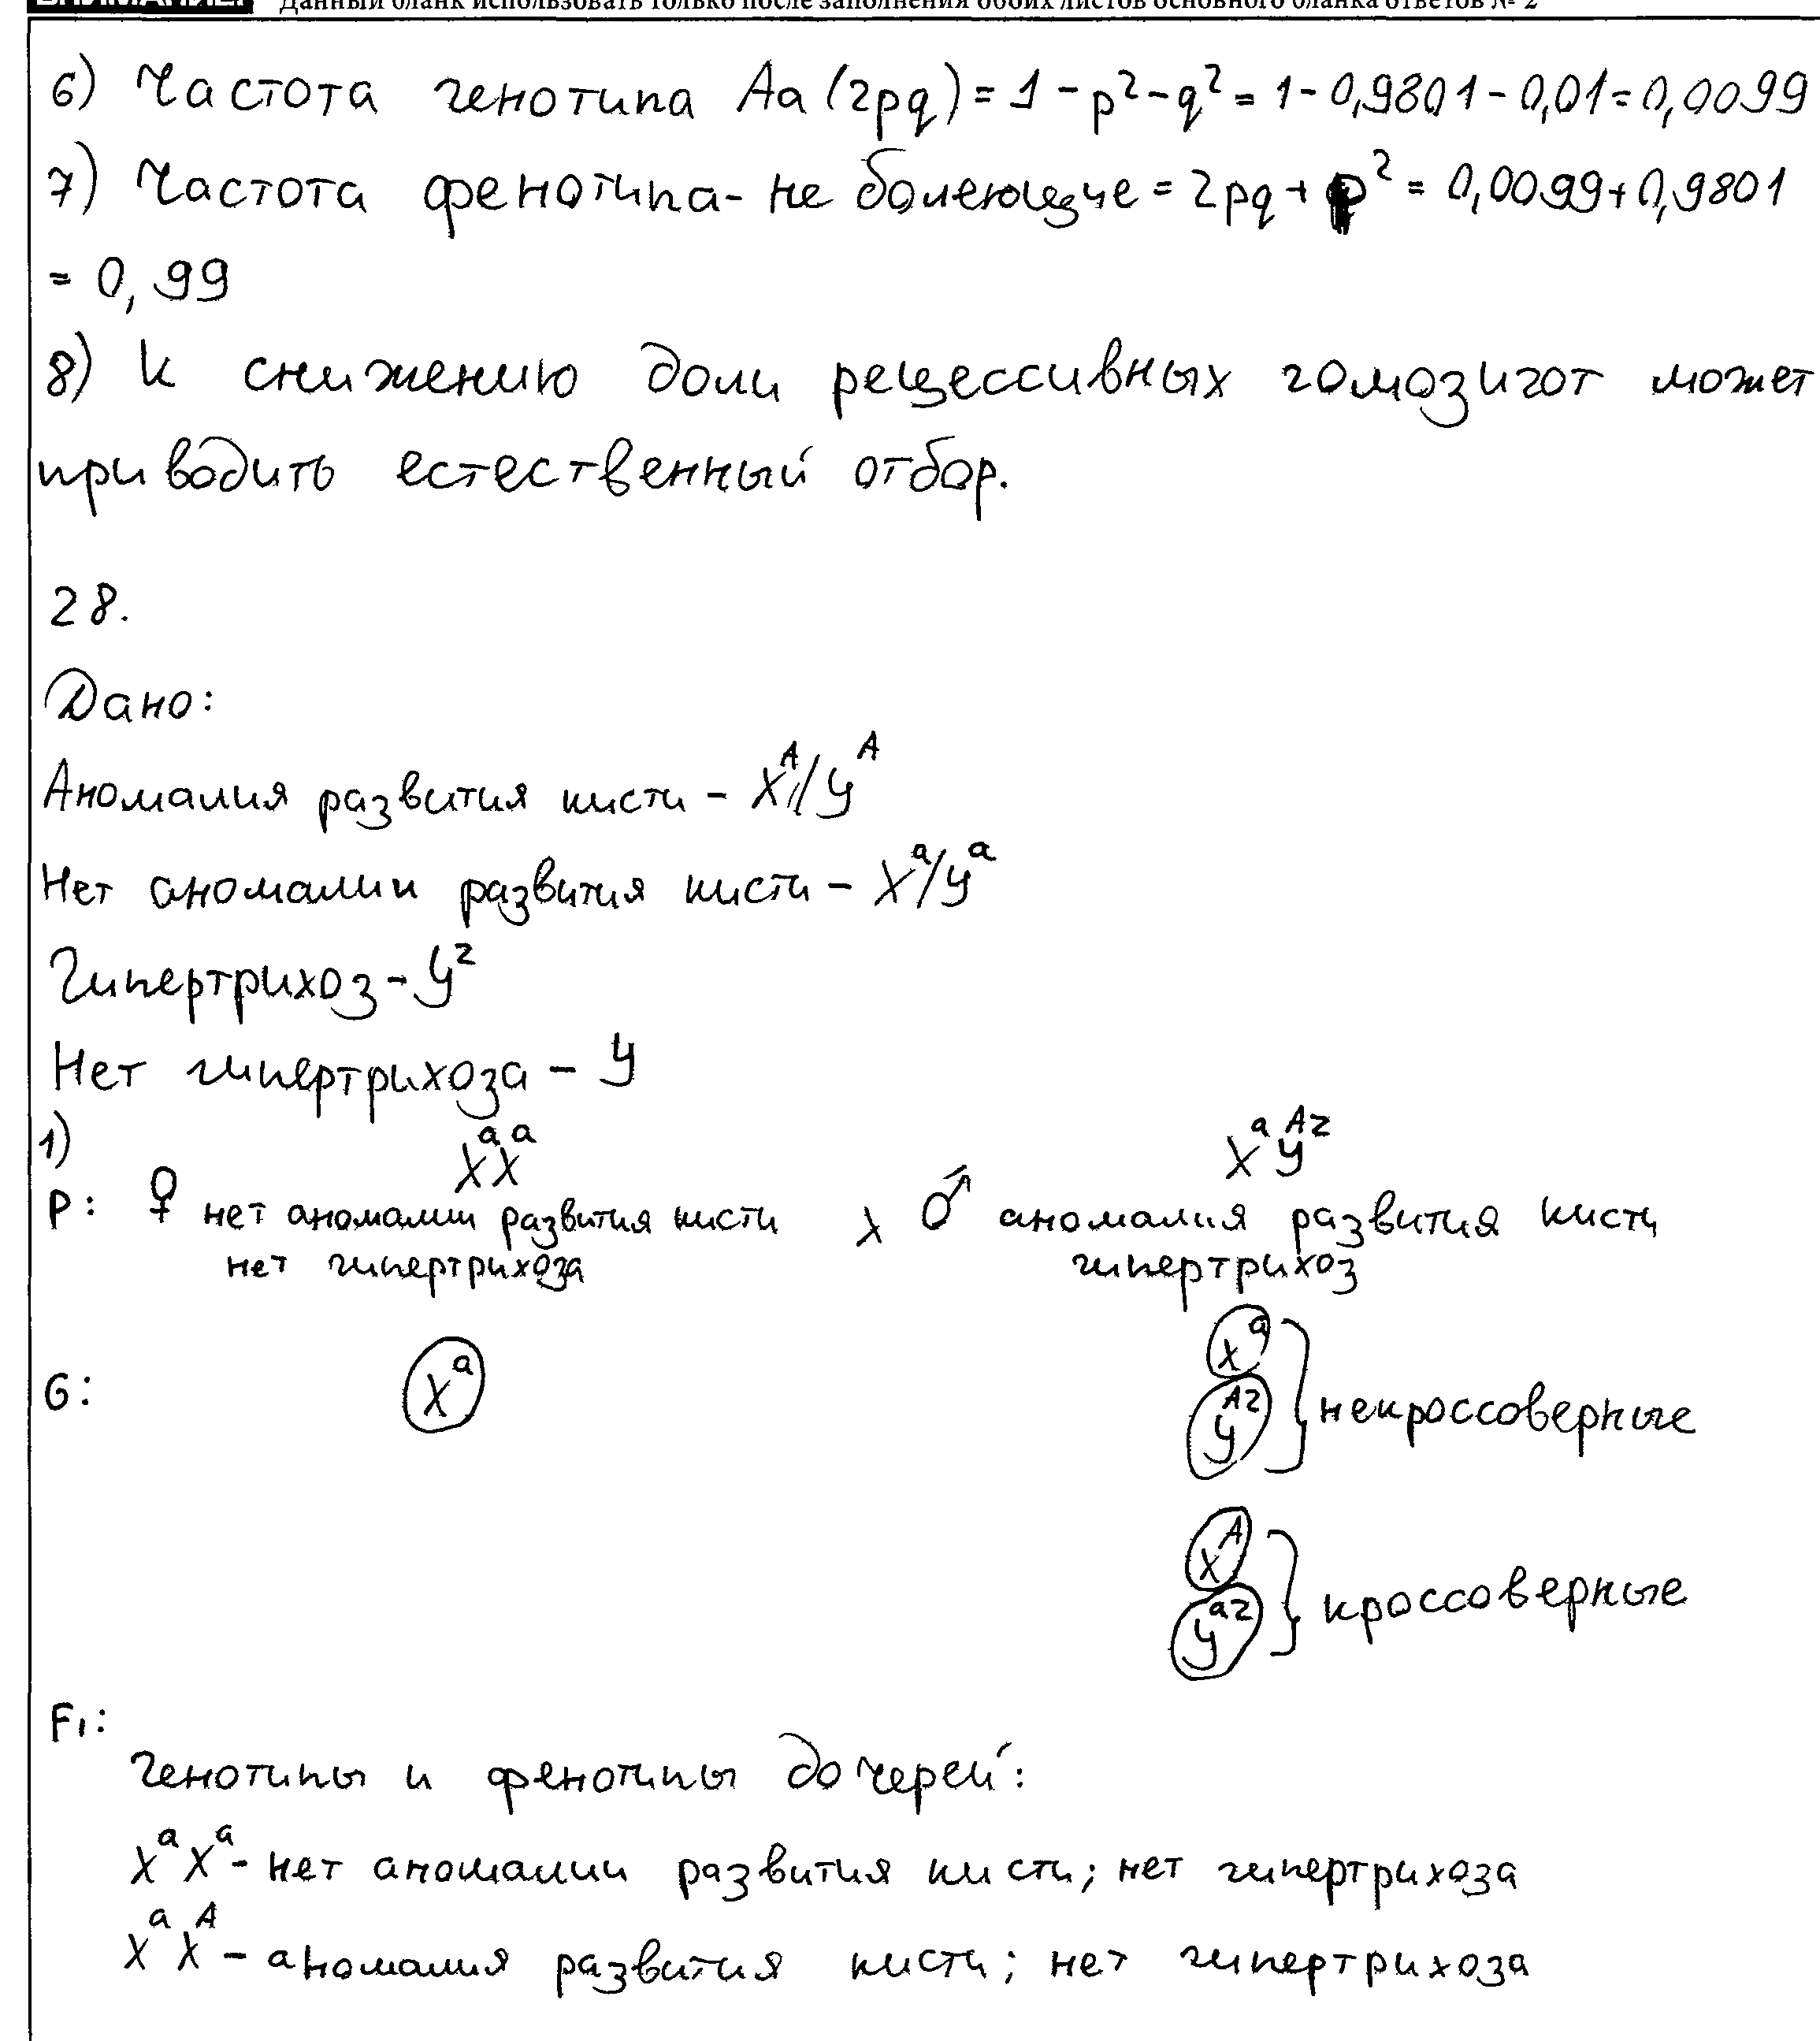 ВНИМАНИЕ! Данный бланк использовать только после заполнения обоих листов основного бланка ответов № 2
6) Частота генотипа Aa (2pq) = 1 - p² - q² = 1 - 0,9801 - 0,01 = 0,0099
7) Частота фенотипа - не болеющие = 2pq + p² = 0,0099 + 0,9801
= 0,99
8) К снижению доли рецессивных гомозигот может
приводить естественный отбор.
28.
Дано:
Аномалия развития кисти - X^A/Y^A
Нет аномалии развития кисти - X^a/Y^a
Гипертрихоз - Y^г
Нет гипертрихоза - Y
1) X^aX^a X^aY^Aг
P: ♀ нет аномалии развития кисти x ♂ аномалия развития кисти
нет гипертрихоза гипертрихоз
G: X^a X^a Y^Aг } некроссоверные
X^A Y^aг } кроссоверные
F₁:
Генотипы и фенотипы дочерей:
X^aX^a - нет аномалии развития кисти; нет гипертрихоза
X^aX^A - аномалия развития кисти; нет гипертрихоза